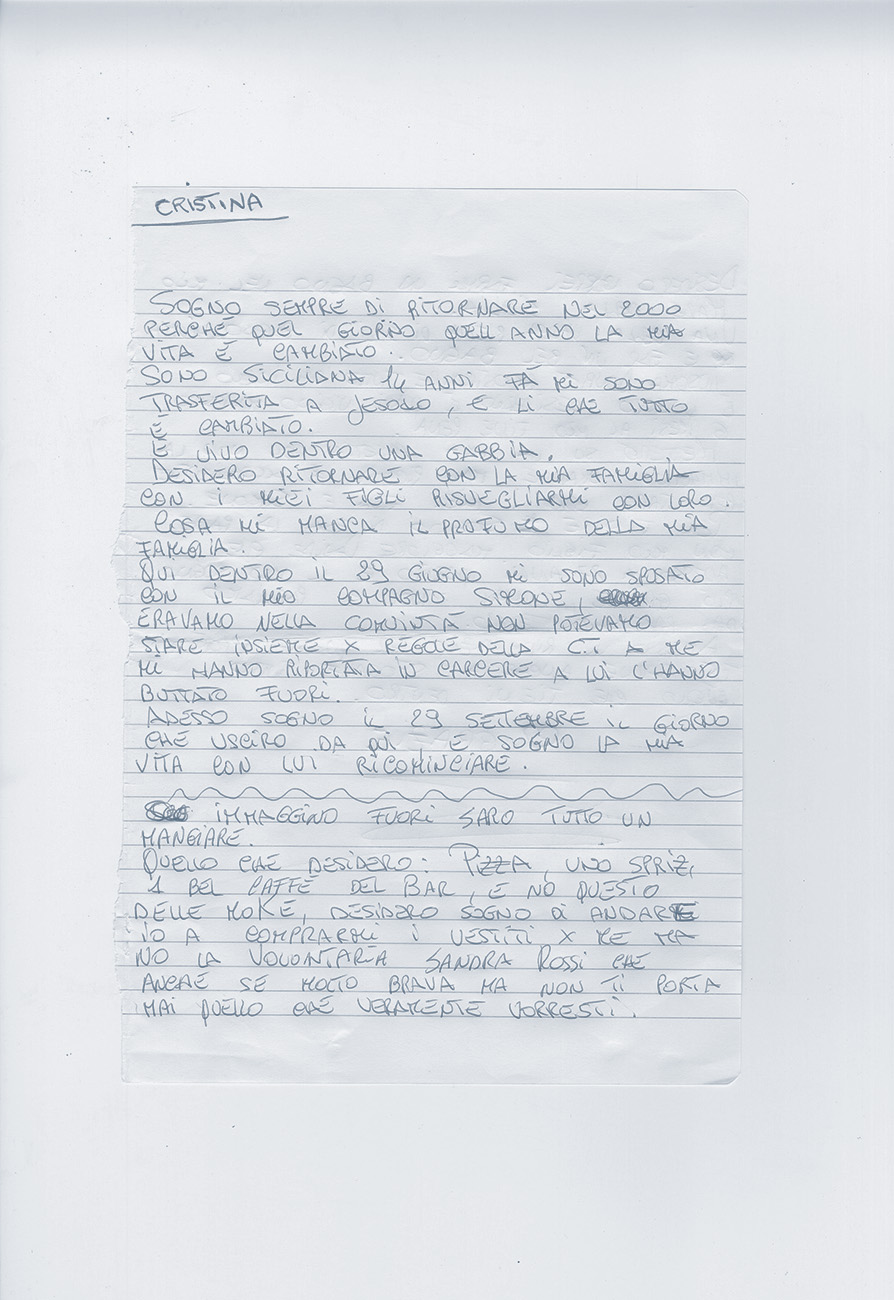 CRISTINA
SOGNO SEMPRE DI RITORNARE NEL 2000
PERCHÉ QUEL GIORNO QUELL ANNO LA MIA
VITA É CAMBIATO.
SONO SICILIANA 14 ANNI FÁ MI SONO
TRASFERITA A JESOLO, E LI CHE TUTTO
É CAMBIATO.
E VIVO DENTRO UNA GABBIA.
DESIDERO RITORNARE CON LA MIA FAMIGLIA
CON I MIEI FIGLI RISVEGLIARMI CON LORO.
COSA MI MANCA IL PROFUMO DELLA MIA
FAMIGLIA.
QUI DENTRO IL 29 GIUGNO MI SONO SPOSATO
CON IL MIO COMPAGNO SIMONE,
ERAVAMO NELLA COMUNITÁ NON POTEVAMO
STARE INSIEME X REGOLE DELLA C.T A ME
MI HANNO RIPORTATA IN CARCERE A LUI L'HANNO
BUTTATO FUORI.
ADESSO SOGNO IL 29 SETTEMBRE IL GIORNO
CHE USCIRO DA QUI E SOGNO LA MIA
VITA CON LUI RICOMINCIARE.
IMMAGGINO FUORI SARO TUTTO UN
MANGIARE.
QUELLO CHE DESIDERO: PIZZA, UNO SPRIZ,
1 BEL CAFFÉ DEL BAR, E NO QUESTO
DELLE MOKE, DESIDERO SOGNO DI ANDARE
IO A COMPRARMI I VESTITI X ME MA
NO LA VOLONTARIA SANDRA ROSSI CHE
ANCHE SE MOLTO BRAVA MA NON TI PORTA
MAI QUELLO CHE VERAMENTE VORRESTI.